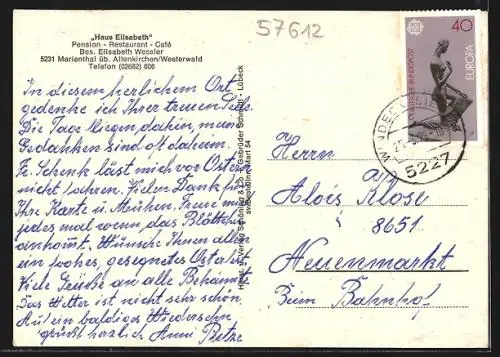 57612
„Haus Elisabeth"
Pension - Restaurant - Café
Bes. Elisabeth Wessler
5231 Marienthal üb. Altenkirchen/Westerwald
Telefon (02682) 606
In diesem herlichem Ort
gedenke ich Ihrer treuen Seele
Die Tage liegen dahin, meine
Gedanken sind oft daheim.
Fr. Schenk läst mich vor Ostern
nicht fahren. Vielen Dank für
Ihre Karte u. Mühen. Freue mich
jedes mal wenn das Blättchen
ankommt. Wünsche Ihnen allen
ein frohes, gesegnetes Osterfest
Viele Grüße an alle Bekannten
Das Wetter ist nicht sehr schön.
Auf ein baldiges Wiedersehn
grüßt herzlich Anni
Gebrüder Schmidt, Lübeck
40
DEUTSCHE BUNDESPOST
EUROPA
CEPT
5227
Herrn
Alois Klose
8651
Neuenmarkt
Beim Bahnhof